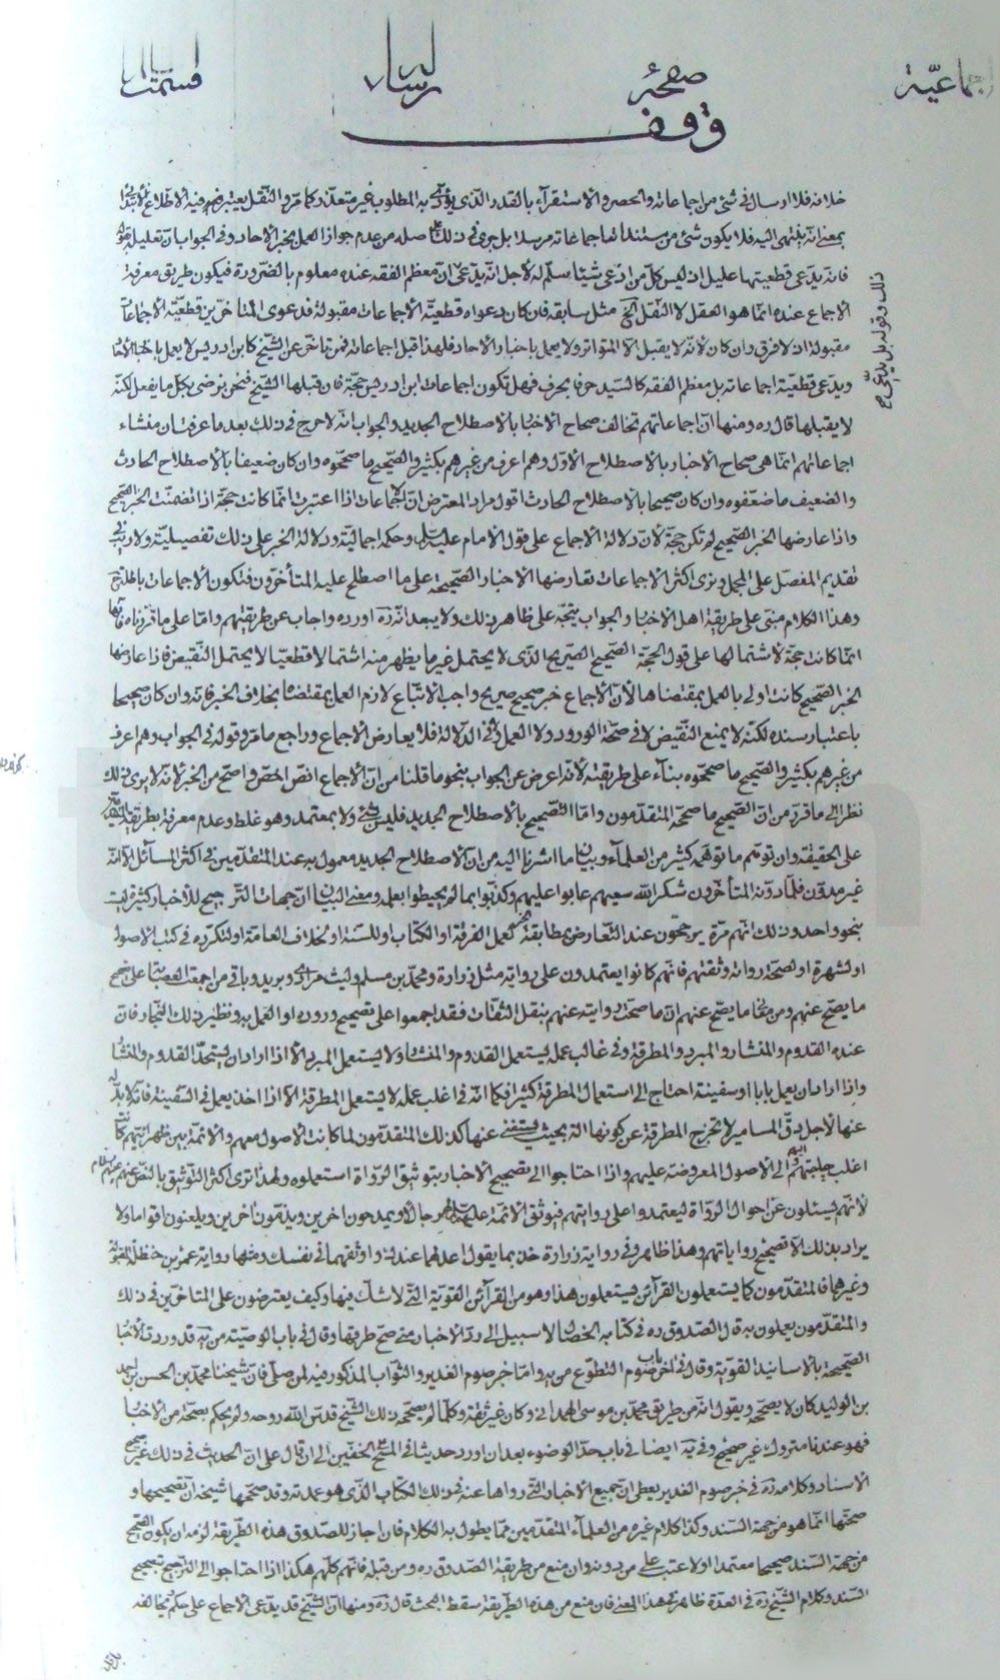 اجماعية صفحۀ رساله قسمت
وقف
خلافه فلا ارسال في شئ من اجماعاته والحصر والاستقراء بالقدر الذي يؤدي به المطلوب غير متعذر كما مر والنقل يعتبر فيه الاطلاع
بمعنى انه ينتهى اليه فلا يكون شئ من مستندات اجماعاته مرسلا بل جرى في ذلك على اصله من عدم جواز العمل بخبر الاحاد وفي الجواب ان تعليله بقوله
فانه يدعى قطعيتها عليل اذ ليس كل من ادعى شيئا سلم له لاجل انه يدعى ان معظم الفقه عنده معلوم بالضرورة فيكون طريق معرفة
الاجماع عنده انما هو العقل لا النقل الخ مثل سابقه فان كان دعواه قطعية الاجماعات مقبولة فدعوى المتاخرين قطعية الاجماعات
مقبولة اذ لا فرق وان كان لانه لا يقبل الا المتواتر ولا يعمل باخبار الاحاد فلهذا قبل اجماعاته فمن تاخر عن الشيخ كابن ادريس لا يعمل باخبار الاحاد
ويدعى قطعية اجماعاته بل معظم الفقه كالسيد حرفا بحرف فهل تكون اجماعات ابن ادريس حجة فان قبلها الشيخ فنحن نرضى بكل ما يفعل لكنه
لا يقبلها قال ره ومنها ان اجماعاتهم تخالف صحاح الاخبار بالاصطلاح الجديد والجواب انه لا حرج في ذلك بعد ما عرفت ان منشاء
اجماعاتهم انما هى صحاح الاخبار بالاصطلاح الاول وهم اعرف من غيرهم بكثير والصحيح ما صححوه وان كان ضعيفا بالاصطلاح الحادث
والضعيف ما ضعفوه وان كان صحيحا بالاصطلاح الحادث اقول مراد المعترض ان الاجماعات اذا اعتبرت انما كانت حجة اذا تضمنت الخبر الصحيح
واذا عارضها الخبر الصحيح لم تكن حجة لان دلالة الاجماع على قول الامام عليه السلم وحكمه اجمالية ودلالة الخبر على ذلك تفصيلية ولا ريب في
تقديم المفصل على المجمل ونرى اكثر الاجماعات تعارضها الاخبار الصحيحة على ما اصطلح عليه المتأخرون فتكون الاجماعات باطلة
وهذا الكلام مبنى على طريقة اهل الاخبار والجواب يتجه على ظاهر ذلك ولا يبعد انه ره اورده واجاب عن طريقتهم واما على ما قررناه فانها
انما كانت حجة لاشتمالها على قول الحجة الصحيح الصريح الذى لا يحتمل غير ما يظهر منه اشتمالا قطعيا لا يحتمل النقيض فاذا عارضها
الخبر الصحيح كانت اولى بالعمل بمقتضاها لان الاجماع خبر صحيح صريح واجب الاتباع لازم العمل بمقتضاه بخلاف الخبر فانه وان كان صحيحا
باعتبار سنده لكنه لا يمنع النقيض لا في صحة الورود ولا العمل ولا في الدلالة فلا يعارض الاجماع وراجع ما مر وقوله في الجواب وهم اعرف
من غيرهم بكثير والصحيح ما صححوه بناء على طريقته لانه اعرض عن الجواب بنحو ما قلنا من ان الاجماع انص اخص واصح من الخبر لانه لا يرى ذلك
نظرا الى ما قرر من ان الصحيح ما صححه المتقدمون واما التصحيح بالاصطلاح الجديد فليس بشئ ولا بمعتمد وهو غلط وعدم معرفة بطريقة
على الحقيقة وان توهم ما توهمه كثير من العلماء وبيان ما اشرنا اليه من ان الاصطلاح الجديد معمول به عند المتقدمين في اكثر المسائل الا انه
غير مدون فلما دونه المتأخرون شكر الله سعيهم عابوا عليهم وكذبوا بما لم يحيطوا بعلمه ومعنى البيان ان جهات الترجيح للاخبار كثيرة ليست
بنحو واحد وذلك انهم مرة يرجحون عند التعارض بمطابقة الخبر لعمل الفرقة او الكتاب او للسنة او بخلاف العامة او لتكرره في كتب الاصول
او لشهرة او لصحة رواته وثقتهم فانهم كانوا يعتمدون على رواية مثل زرارة ومحمد بن مسلم وليث مرادى وبريد وباقى من اجمعت العصابة على تصحيح
ما يصح عنهم ومن بنحا ما يصح عنهم ان ما صحت روايته عنهم بنقل الثقات فقد اجمعوا على تصحيح وروده او العمل به ونظير ذلك النجار فان
عنده القدوم والمنشار والمبرد والمطرقة وفى غالب عمله يستعمل القدوم والمنشار ولا يستعمل المبرد الا اذا اراد ان يستحد القدوم والمنشار
واذا اراد ان يعمل بابا او سفينة احتاج الى استعمال المطرقة كثيرا فكما انه في اغلب عمله لا يستعمل المطرقة الا اذا اخذ يعمل في السفينة فانه لا بد له
عنها لاجل دق المسامير لا تخرج المطرقة عن كونها الة بحيث يستغنى عنها كذلك المتقدمون لما كانت الاصول معهم والائمة بين ظهرانيهم كانت
اغلب حاجتهم اليهم والى الاصول المعروضة عليهم واذا احتاجوا الى تصحيح الاخبار بتوثيق الرواة استعملوه ولهذا ترى اكثر التوثيق بالنص عنهم عليهم السلام
لانهم يسئلون عن احوال الرواة ليعتمدوا على روايتهم فيوثق الائمة عليهم السلام رجالا ويمدحون اخرين ويذمون اخرين ويلعنون اقواما ولا
يراد بذلك الا تصحيح رواياتهم وهذا ظاهر وفى رواية زرارة خذ بما يقول اعدلهما عندك واوثقهما في نفسك ومثلها رواية عمر بن حنظلة المقبولة
وغيرهما فالمتقدمون كما يستعملون القرائن يستعملون هذا وهو من القرائن القوية التى لا شك فيها وكيف يعترضون على المتاخرين في ذلك
والمتقدمون يعملون به قال الصدوق ره في كتابه الخصال لا سبيل الى رد الاخبار متى صح طريقها وقال في باب الوصية من يه قد وردت الاخبار
الصحيحة بالاسانيد القوية وقال في اخر باب صوم التطوع من يه واما خبر صوم الغدير والثواب المذكور فيه لمن صامه فان شيخنا محمد بن الحسن بن احمد
بن الوليد كان لا يصححه ويقول انه من طريق محمد بن موسى الهمدانى وكان غير ثقة وكلما لم يصححه ذلك الشيخ قدس الله روحه ولم يحكم بصحته من الاخبار
فهو عندنا متروك غير صحيح وفى يه ايضا في باب حد الوضوء بعد ان اورد حديثا في المسح على الخفين الى ان قال على ان الحديث في ذلك غير صحيح
الاسناد وكلامه ره في خبر صوم الغدير يعطى ان جميع الاخبار التى رواها عنه في ذلك الكتاب الذى هو عمدته وقد صححها شيخه ان تصحيحها و
صحتها انما هو من جهة السند وكذا كلام غيره من العلماء المتقدمين مما يطول به الكلام فان اجاز للصدوق هذه الطريقة لزمه ان يكون الصحيح
من جهة السند صحيحا معتمدا ولا عتب على من دونه وان منع من طريقة الصدوق ره ومن قبله فانهم كلهم هكذا اذا احتاجوا الى الترجيح بتصحيح
السند وكلام الشيخ ره في العدة ظاهر في هذا المعنى فان منع من هذه الطريقة سقط البحث قال ره ومنها ان الشيخ قد يدعى الاجماع على حكم يخالفه
ذلك وقوله بل يدعى